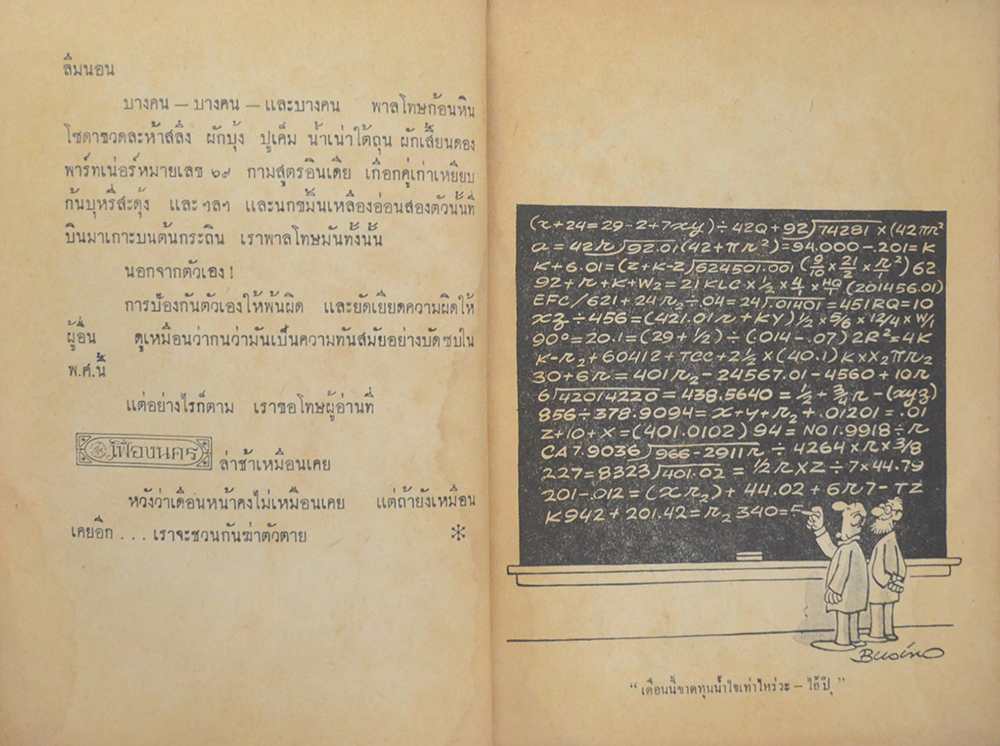 ลืมนอน
บางคน — บางคน — และบางคน พาลโทษก้อนหิน
โซดาขวดละห้าสลึง ผักบุ้ง ปูเค็ม น้ำเน่าใต้ถุน ผักเสี้ยนดอง
พาร์ทเน่อร์หมายเลข ๖๙ กามสูตรอินเดีย เกือกคู่เก่าเหยียบ
ก้นบุหรี่สะดุ้ง และ ฯลฯ และนกขมิ้นเหลืองอ่อนสองตัวนั้นที่
บินมาเกาะบนต้นกระถิน เราพาลโทษมันทั้งนั้น
นอกจากตัวเอง !
การป้องกันตัวเองให้พ้นผิด และยัดเยียดความผิดให้
ผู้อื่น ดูเหมือนว่ากนว่ามันเป็นความทันสมัยอย่างบัดซบใน
พ.ศ.นี้
แต่อย่างไรก็ตาม เราขอโทษผู้อ่านที่
เฟืองนคร ล่าช้าเหมือนเคย
หวังว่าเดือนหน้าคงไม่เหมือนเคย แต่ถ้ายังเหมือน
เคยอีก . . . เราจะชวนกันฆ่าตัวตาย *
(x+24=29-2+7xy)÷42Q+92)74281×(42πr²
a=42r)92.01(42+πr²)=94.000-.201=K
K+6.01=(Z+K-Z)624501.001(9/10×21/2×r/1²)62
92+r+K+W₂=21KLC×½×4/1×HQ/2(201456.01)
EFC/621+24r₂÷.04=24).01401=451RQ=10
xz÷456=(421.01r+KY)½×5/6×12/4×W/1
90°=20.1=(29+½)÷(.014-.07)2R²=4K
K-r₂+60412+TCC+2½×(40.1)K×X₂πr₂
30+6r=401r₂-24567.01-4560+10r
6)42014220=438.5640=½+¾r-(xyz)
856÷378.9094=x+y+r₂+.01201=.01
Z+10+X=(401.0102)94=NO1.9918÷r
CA7.9036)966-2911r÷4264×r×3/8
227=8323)401.02=½r×Z÷7×44.79
201-.012=(xr₂)+44.02+6r7-TZ
K942+201.42=r₂340=5
Busino
“ เดือนนี้ขาดทุนน้ำใจเท่าไหร่วะ — ไอ้ปุ๊ ”